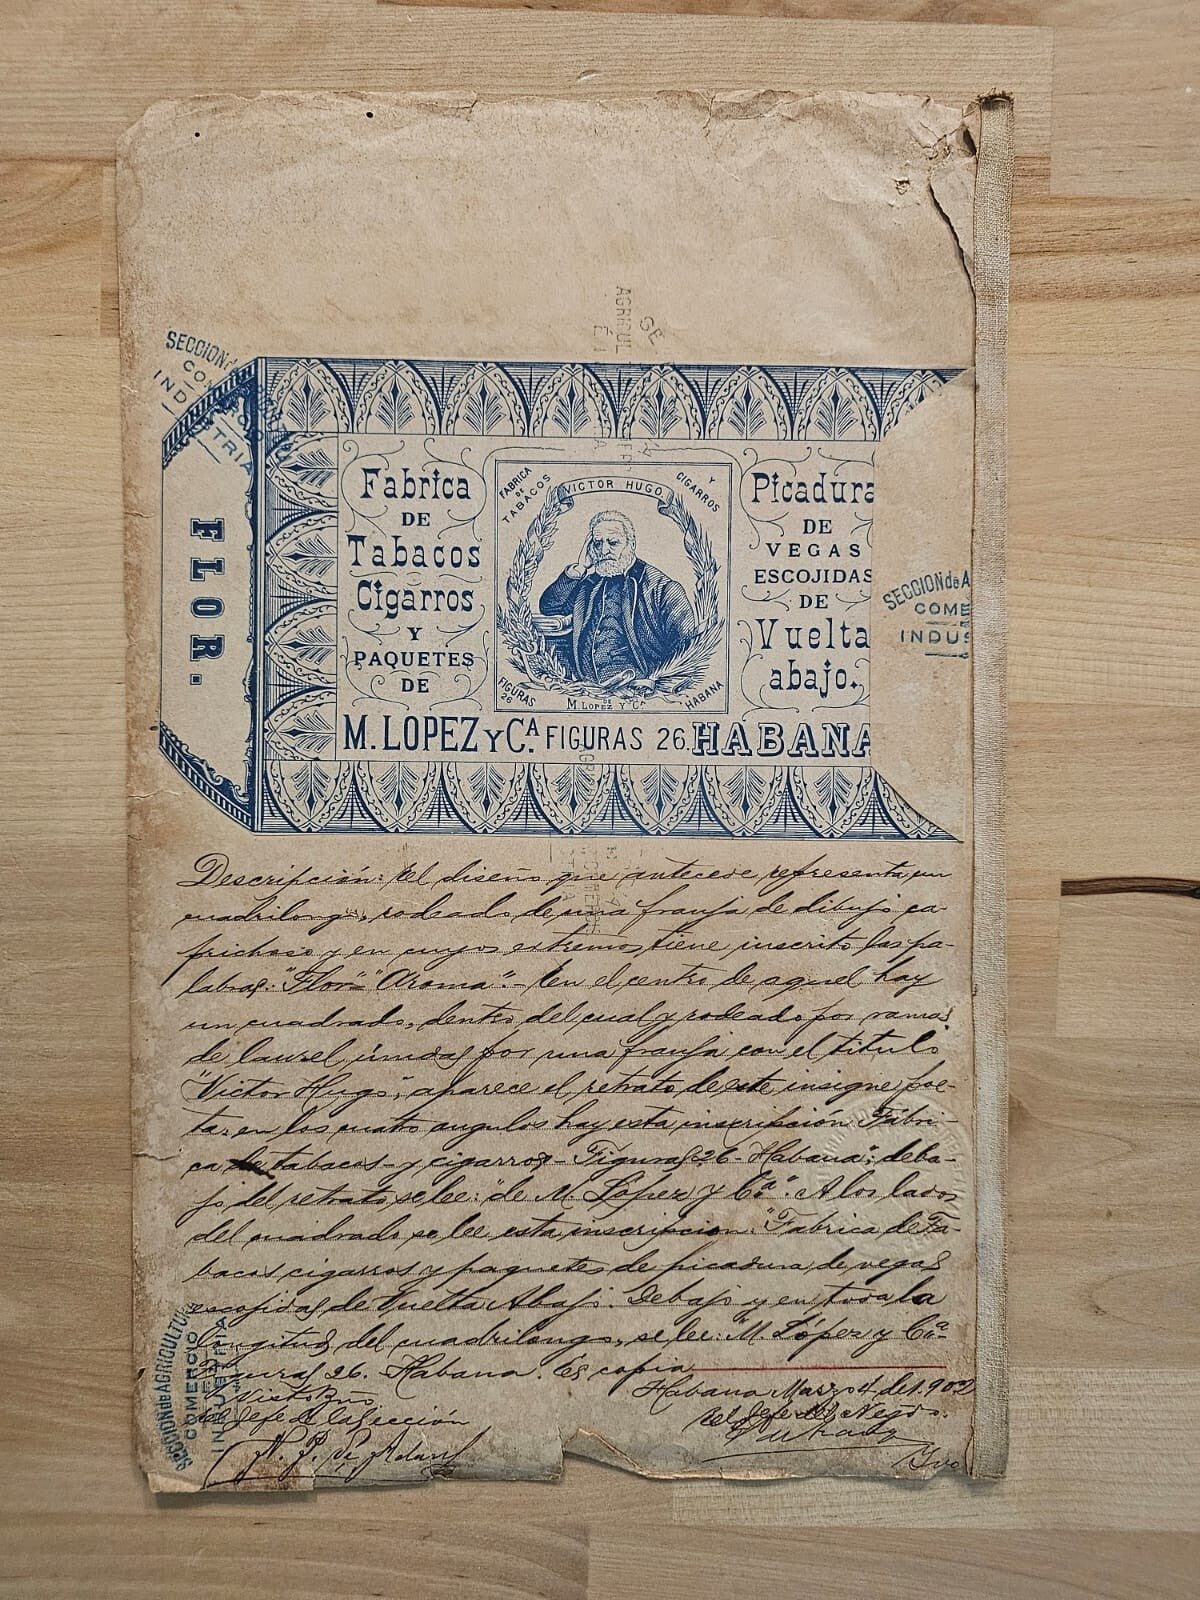 SECCION de
CO
INDUSTRIA
FLOR.
Fabrica
DE
Tabacos
Cigarros
Y
PAQUETES
DE
FABRICA
DE
TABACOS
Y
CIGARROS
VICTOR HUGO
FIGURAS
26
DE
M. LOPEZ Y Cª
HABANA
Picadura
DE
VEGAS
ESCOJIDAS
DE
Vuelta
abajo.
M. LOPEZ Y Cª. FIGURAS 26. HABANA
SECCION de A
COME
INDUS
Descripción: El diseño que antecede representa un
cuadrilongo, rodeado de una franja de dibujo ca-
prichoso y en cuyos extremos tiene inscrito las pa-
labras: "Flor" "Aroma". - En el centro de aquel hay
un cuadrado, dentro del cual y rodeado por ramas
de laurel, unidas por una franja con el titulo
"Victor Hugo", aparece el retrato de este insigne poe-
ta: en los cuatro angulos hay esta inscripción Fábri-
ca de tabacos - y cigarros - Figuras 26 - Habana"; deba-
jo del retrato se lee: "de M. López y Cª". A los lados
del cuadrado se lee esta inscripcion: "Fabrica de Ta-
bacos cigarros y paquetes de picadura de vegas
escojidas de Vuelta Abajo. Debajo y en toda la
longitud del cuadrilongo, se lee: "M. López y Cª-
Figuras 26. Habana. Es copia
Habana Marzo 4 de 1902
Visto Bno
El Jefe de la Sección
El Jefe del Negdo.
SECCION de AGRICULTURA
COMERCIO
INDUSTRIA